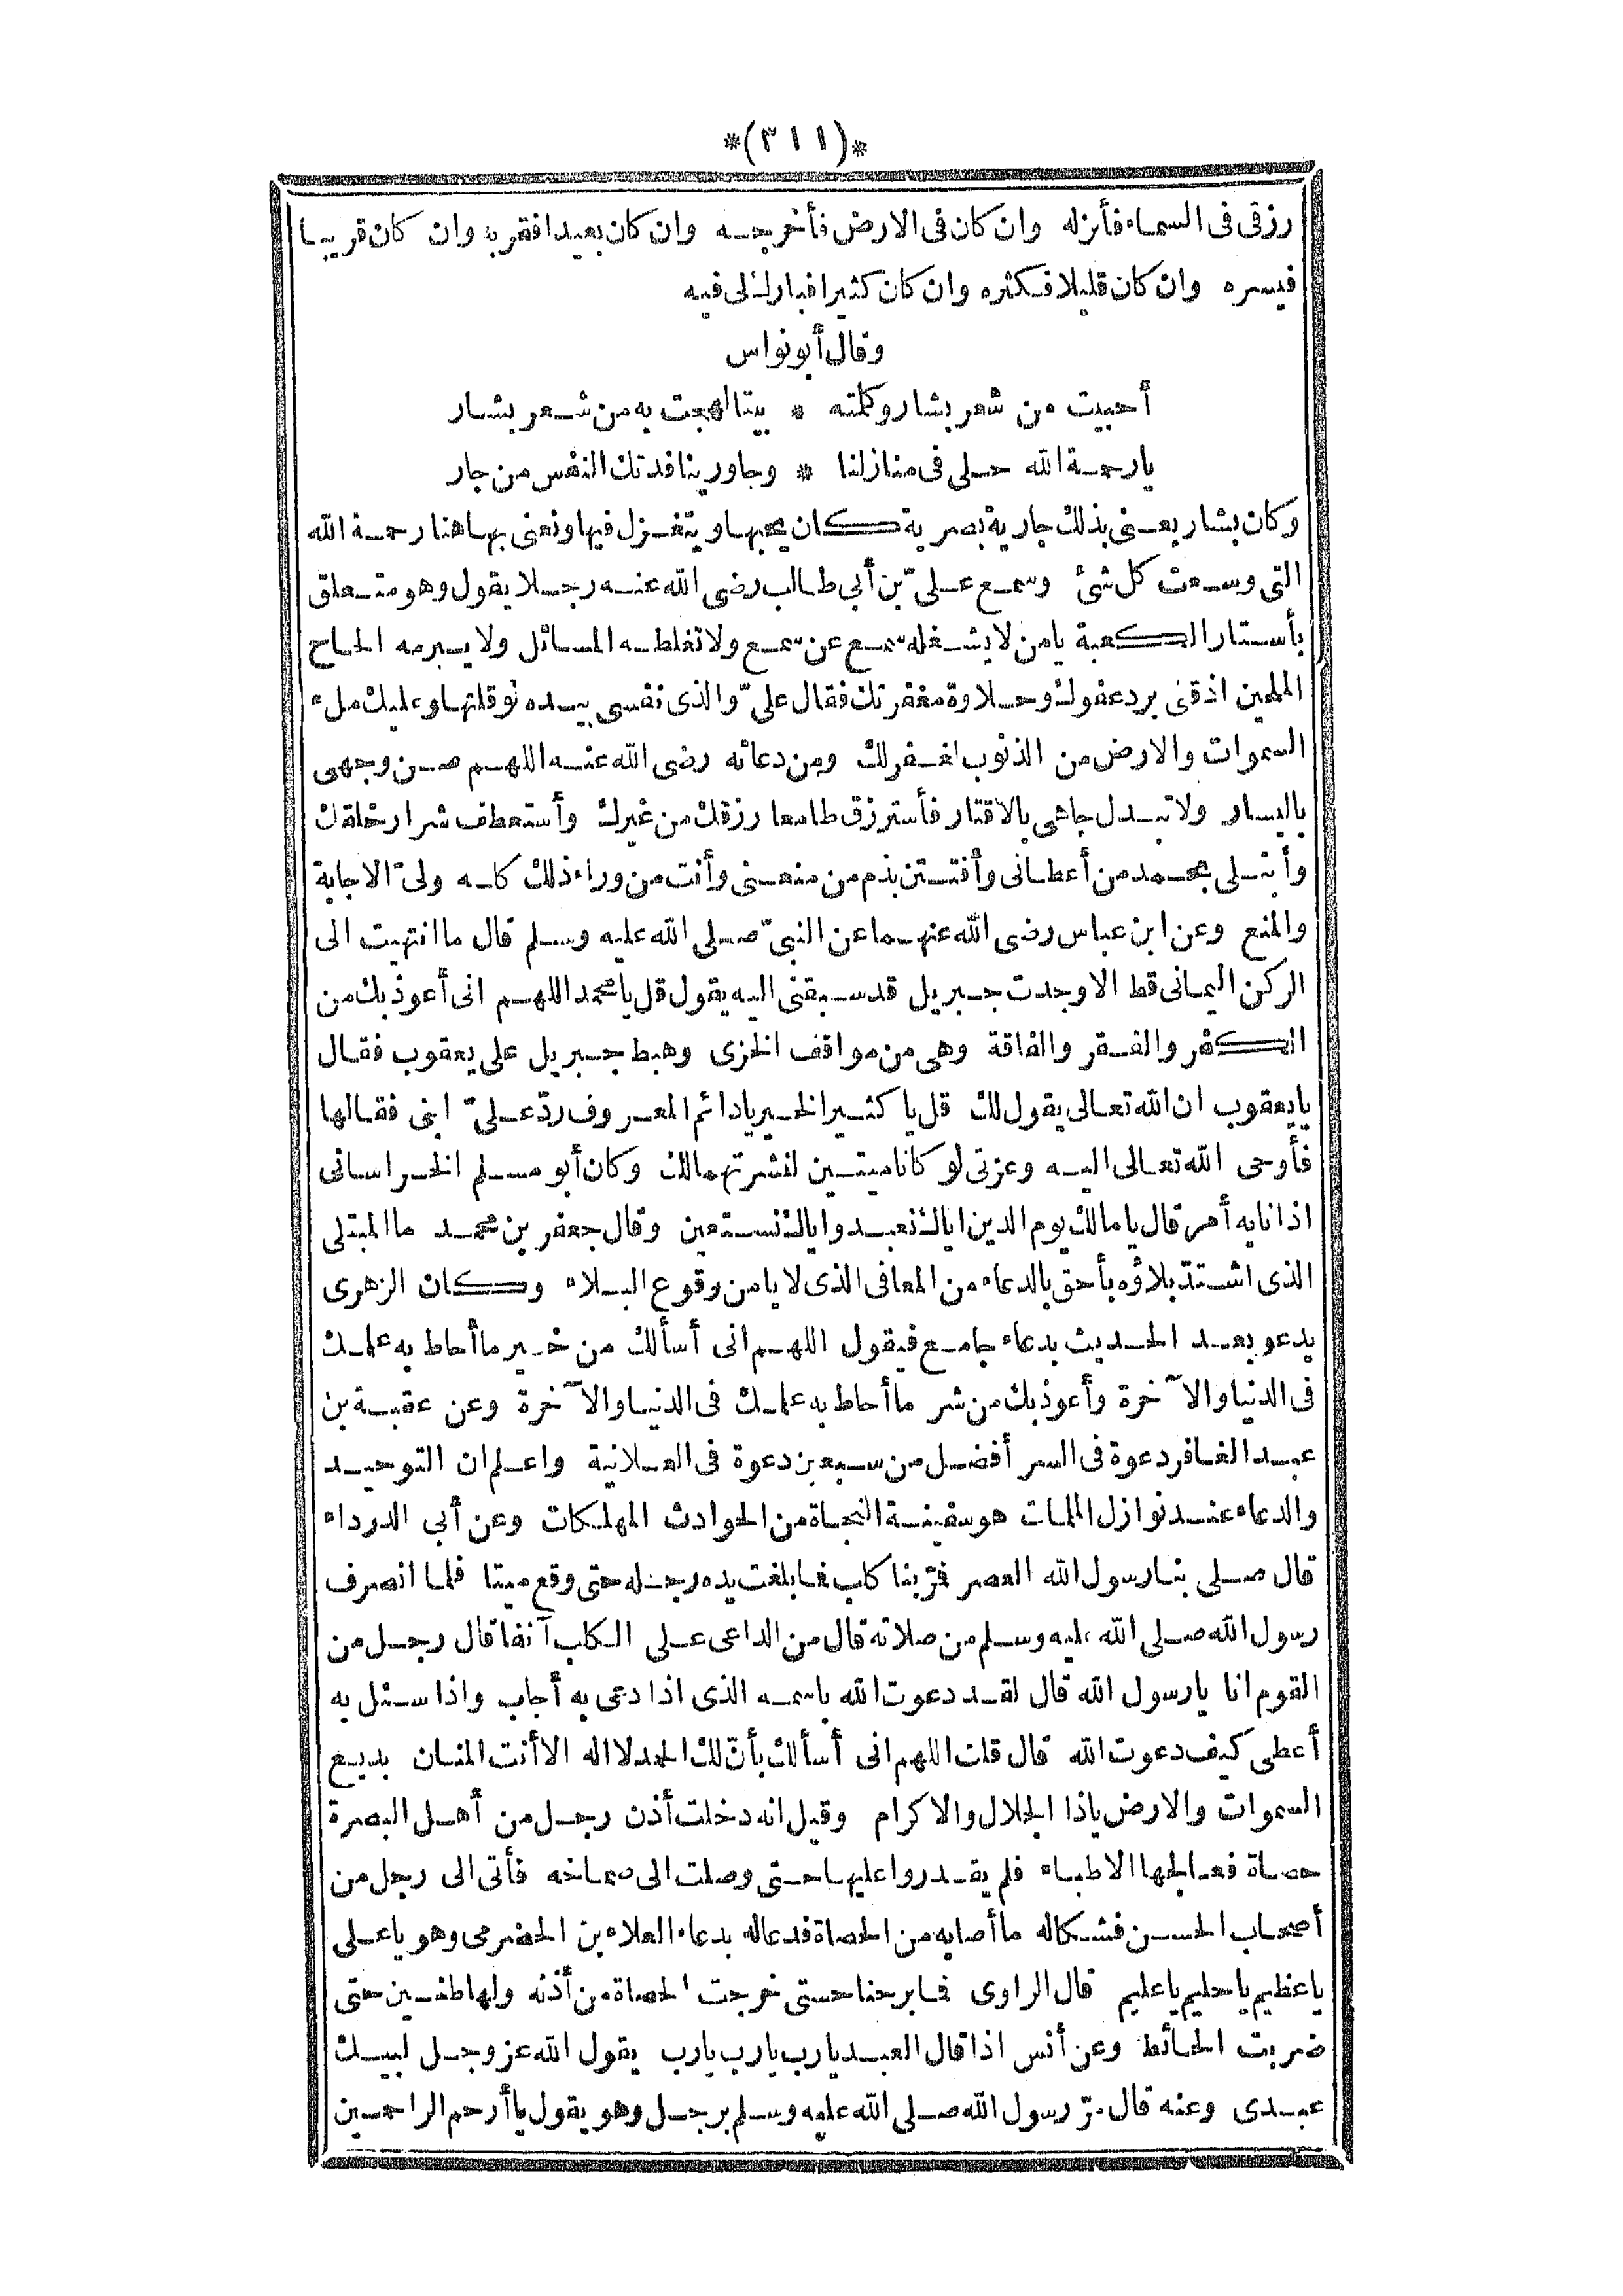 *(٣١١)*
رزقى فى السماء فأنزله وان كان فى الارض فأخرجه وان كان بعيدا فقربه وان كان قريبا
فيسره وان كان قليلا فكثره وان كان كثيرا فبارك لى فيه
وقال أبو نواس
أحببت من شعر بشار وكلته * بيتا لهجت به من شعر بشار
يا رحمة الله حلى فى منازلنا * وجاورينا فدتك النفس من جار
وكان بشار يعنى بذلك جارية بصرية كان يحبها ويتغزل فيها ونعنى بها هنا رحمة الله
التى وسعت كل شئ وسمع علىّ بن أبى طالب رضى الله عنه رجلا يقول وهو متعلق
بأستار الكعبة يا من لا يشغله سمع عن سمع ولا تغلطه المسائل ولا يبرمه الحاح
الملحين اذقنى برد عفوك وحلاوة مغفرتك فقال علىّ والذى نفسى بيده لو قلتها وعليك ملء
السموات والارض من الذنوب لغفر لك ومن دعائه رضى الله عنه اللهم صن وجهى
باليسار ولا تبدل جاهى بالاقتار فأسترزق طامعا رزقك من غيرك وأستعطف شرار خلقك
وأبتلى بحمد من أعطانى وأفتتن بذم من منعنى وأنت من وراء ذلك كله ولىّ الاجابة
والمنع وعن ابن عباس رضى الله عنهما عن النبىّ صلى الله عليه وسلم قال ما انتهيت الى
الركن اليمانى قط الا وجدت جبريل قد سبقنى اليه يقول قل يا محمد اللهم انى أعوذ بك من
الكفر والفقر والفاقة وهى من مواقف الخزى وهبط جبريل على يعقوب فقال
يا يعقوب ان الله تعالى يقول لك قل يا كثير الخير يا دائم المعروف ردّ علىّ ابنى فقالها
فأوحى الله تعالى اليه وعزتى لو كانا ميتين لنشرتهما لك وكان أبو مسلم الخراسانى
اذا نابه أمر قال يا مالك يوم الدين اياك نعبد واياك نستعين وقال جعفر بن محمد ما المبتلى
الذى اشتدّ بلاؤه بأحق بالدعاء من المعافى الذى لا يامن وقوع البلاء وكان الزهرى
يدعو بعد الحديث بدعاء جامع فيقول اللهم انى أسألك من خير ما أحاط به علمك
فى الدنيا والآخرة وأعوذ بك من شر ما أحاط به علمك فى الدنيا والآخرة وعن عقبة بن
عبد الغافر دعوة فى السر أفضل من سبعين دعوة فى العلانية واعلم ان التوحيد
والدعاء عند نوازل الملمات هو سفينة النجاة من الحوادث المهلكات وعن أبى الدرداء
قال صلى بنا رسول الله العصر فمرّ بنا كلب فما بلغت يده رجله حتى وقع ميتا فلما انصرف
رسول الله صلى الله عليه وسلم من صلاته قال من الداعى على الكلب آنفا قال رجل من
القوم انا يا رسول الله قال لقد دعوت الله باسمه الذى اذا دعى به أجاب واذا سئل به
أعطى كيف دعوت الله قال قلت اللهم انى أسألك بأنّ لك الحمد لا اله الا أنت المنان بديع
السموات والارض يا ذا الجلال والاكرام وقيل انه دخلت أذن رجل من أهل البصرة
حصاة فعالجها الاطباء فلم يقدروا عليها حتى وصلت الى صماخه فأتى الى رجل من
أصحاب الحسن فشكا له ما أصابه من الحصاة فدعا له بدعاء العلاء بن الحضرمى وهو يا على
يا عظيم يا حليم يا عليم قال الراوى فما برحنا حتى خرجت الحصاة من أذنه ولها طنين حتى
ضربت الحائط وعن أنس اذا قال العبد يا رب يا رب يا رب يقول الله عز وجل لبيك
عبدى وعنه قال مرّ رسول الله صلى الله عليه وسلم برجل وهو يقول يا أرحم الراحمين